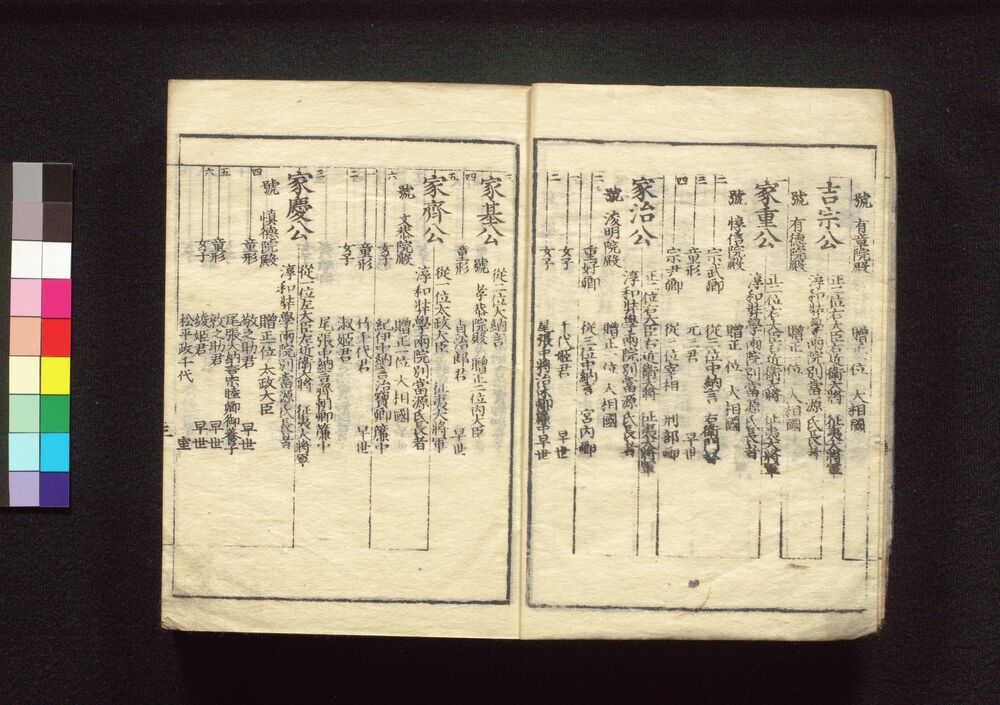 號 有章院殿 贈正一位 大相國
吉宗公 正二位右大臣右近衛大將 征夷大將軍
淳和弉學兩院別當源氏長者
號 有德院殿 贈正一位 大相國
家重公 正二位右大臣右近衛大將 征夷大將軍
淳和弉學兩院別當源氏長者
號 惇信院殿 贈正一位 大相國
二 宗武卿 從三位中納言 右衛門督
三 童形 元三君 早世
四 宗尹卿 從二位宰相 刑部卿
家治公 正二位右大臣右近衛大將 征夷大將軍
淳和弉學兩院別當源氏長者
號 浚明院殿 贈正一位 大相國
二 重好卿 從三位中納言 宮內卿
一 女子 千代姬君 早世
二 女子 尾張中將治休卿簾中 早世
三
家基公 從二位大納言
號 孝恭院殿 贈正二位內大臣
四 童形 貞次郎君 早世
五
家齊公 從一位太政大臣 征夷大將軍
淳和弉學兩院別當源氏長者
號 文恭院殿 贈正一位 大相國
六 女子 紀伊中納言治寶卿簾中
一 童形 竹千代君 早世
二 女子 淑姬君
尾張中納言齊朝卿簾中
三
家慶公 從一位左大臣左近衛大將 征夷大將軍
淳和弉學兩院別當源氏長者
號 愼德院殿 贈正一位 太政大臣
四 童形 敬之助君 早世
尾張大納言宗睦卿御養子
五 童形 敦之助君 早世
六 女子 綾姬君 早世
松平政千代 室